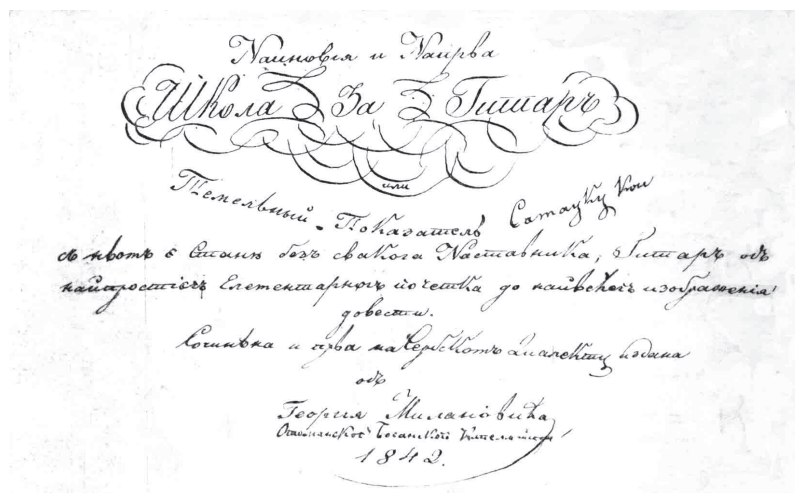 Найновія и Найрва
Школа За Гитаръ
или
Темельный Показатель
съ ньомъ є Станѣ безъ свакога Наставника, Гитаръ одъ
найпростіегъ Елементарногъ почетка до найвећегъ изображенія
довести.
Сочинѣна и прва на Сербскомъ Діалекту издана
одъ
Георгія Милановића
1842.